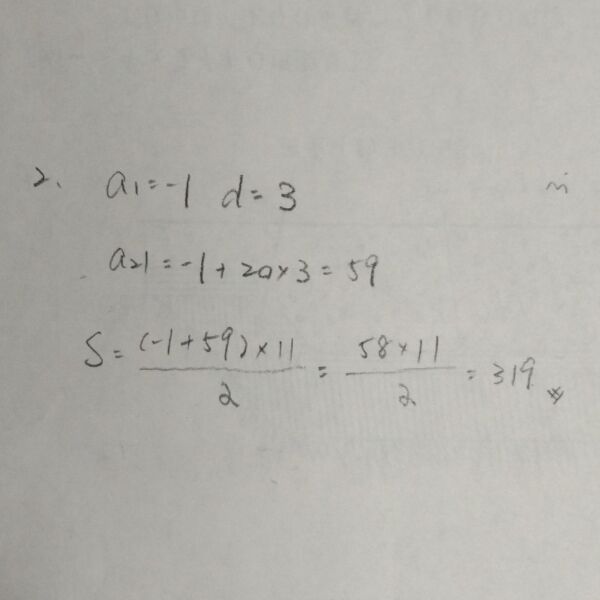 2. a1=-1 d=3
a21=-1+20×3=59
S=(-1+59)×11/2=58×11/2=319